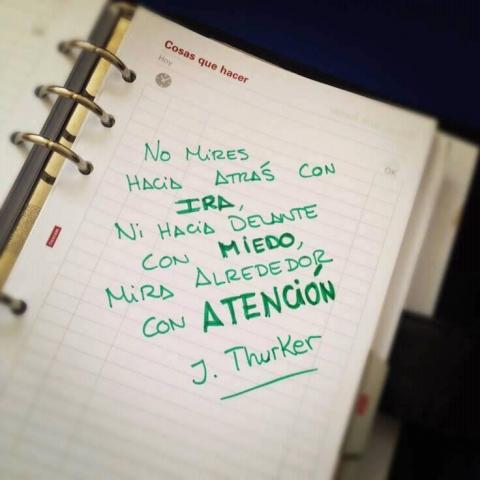 Cosas que hacer
Hoy
OK
NO MIRES
HACIA ATRÁS CON
IRA,
NI HACIA DELANTE
CON MIEDO,
MIRA ALREDEDOR
CON ATENCIÓN
J. Thurker